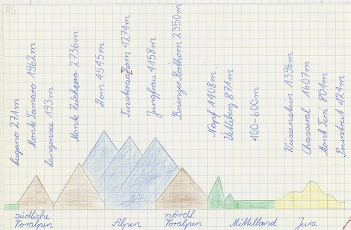 Lugano 271m
Monte Tamaro 1962m
Langensee 193m
Monte Zucchero 2736m
Dom 4545m
Finsteraarhorn 4274m
Jungfrau 4158m
Brienzer-Rothorn 2350m
Napf 1408m
Ütliberg 871m
400-600m
Hasenstein 1396m
Chasseral 1607m
Mont Terri 804m
Pruntrut 424m
südliche Voralpen
Alpen
nördl. Voralpen
Mittelland
Jura